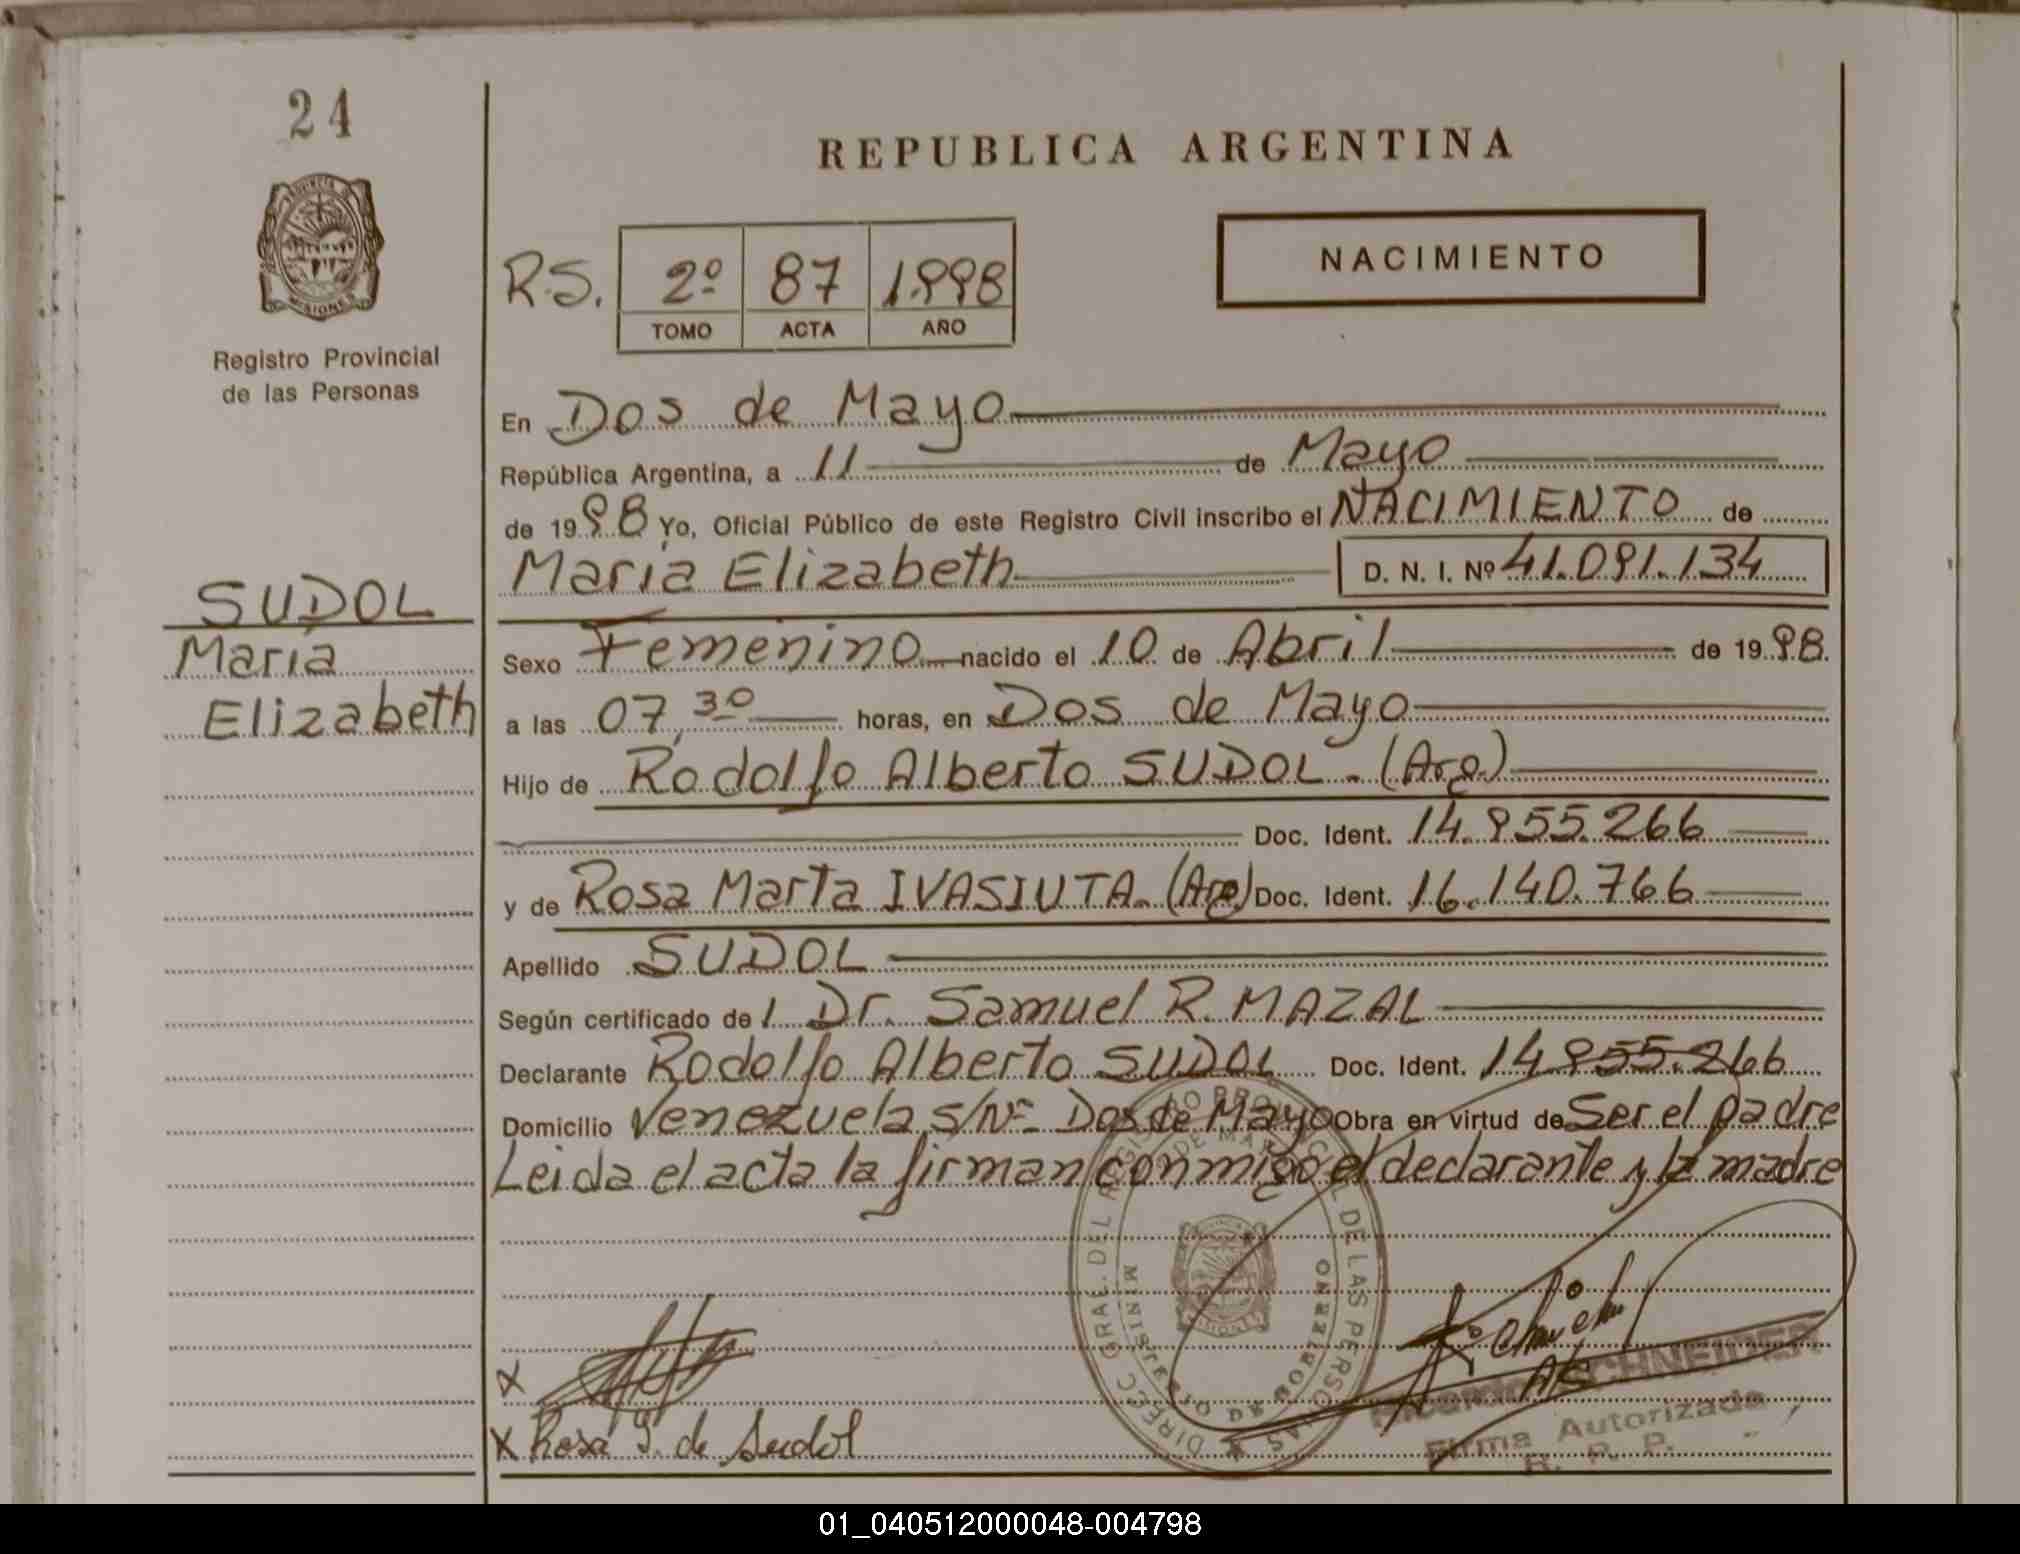 24
REPUBLICA ARGENTINA
PROVINCIA DE
MISIONES
Registro Provincial
de las Personas
R.S.
2º 87 1.998
TOMO ACTA AÑO
NACIMIENTO
En Dos de Mayo
República Argentina, a 11 de Mayo
de 1998 Yo, Oficial Público de este Registro Civil inscribo el NACIMIENTO de
María Elizabeth D. N. I. Nº 41.091.134
SUDOL
María
Elizabeth
Sexo Femenino nacido el 10 de Abril de 1998.
a las 07,30 horas, en Dos de Mayo
Hijo de Rodolfo Alberto SUDOL. (Arg.)
Doc. Ident. 14.955.266
y de Rosa Marta IVASIUTA. (Arg) Doc. Ident. 16.140.766
Apellido SUDOL
Según certificado de l Dr. Samuel R. MAZAL
Declarante Rodolfo Alberto SUDOL Doc. Ident. 14955.266
Domicilio Venezuela S/Nº Dos de Mayo Obra en virtud de Ser el padre
Leida el acta la firman conmigo el declarante y la madre
DIREC. GRAL. DEL REGISTRO PROVINCIAL DE LAS PERSONAS
MINISTERIO DE GOBIERNO
MISIONES
X
X Rosa I. de Sudol
Ricardo SCHNEIDER
Firma Autorizada
R. P. P.
01_040512000048-004798